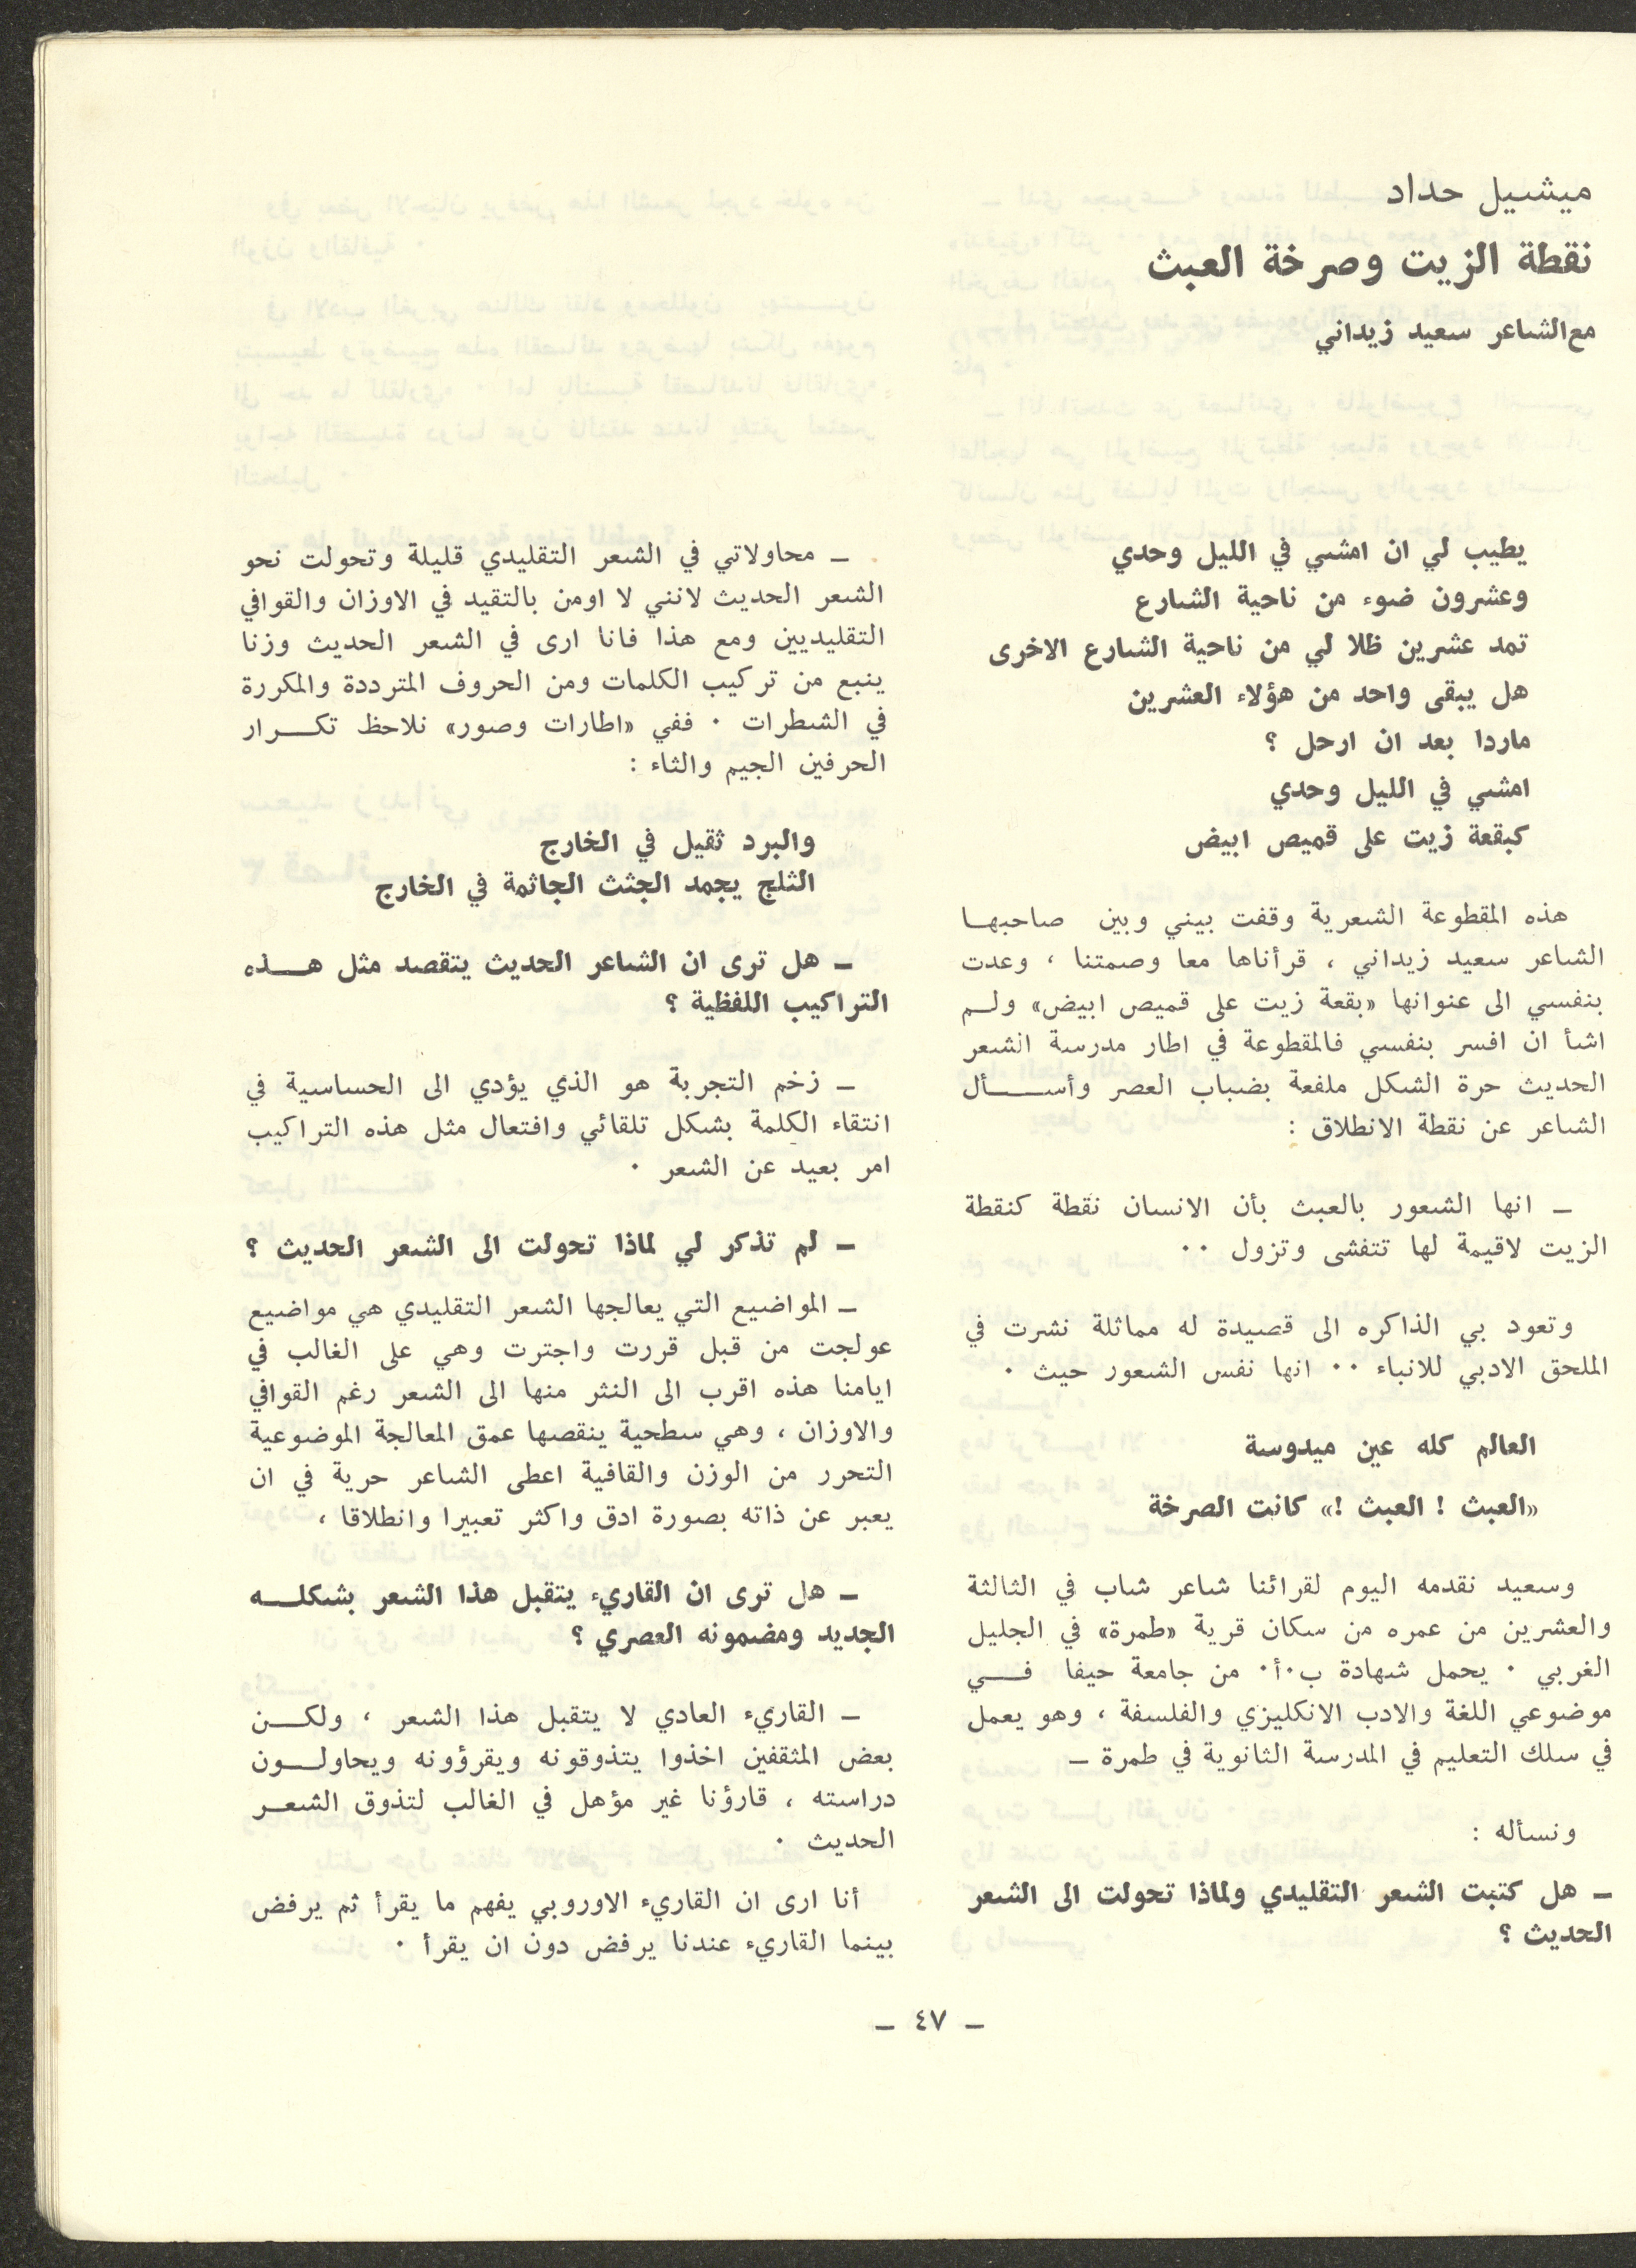 ميشيل حداد
نقطة الزيت وصرخة العبث
مع الشاعر سعيد زيداني
يطيب لي ان امشي في الليل وحدي
وعشرون ضوء من ناحية الشارع
تمد عشرين ظلا لي من ناحية الشارع الاخرى
هل يبقى واحد من هؤلاء العشرين
ماردا بعد ان ارحل ؟
امشي في الليل وحدي
كبقعة زيت على قميص ابيض
هذه المقطوعة الشعرية وقفت بيني وبين صاحبهـا
الشاعر سعيد زيداني ، قرأناها معا وصمتنا ، وعدت
بنفسي الى عنوانها «بقعة زيت على قميص ابيض» ولـم
اشأ ان افسر بنفسي فالمقطوعة في اطار مدرسة الشعر
الحديث حرة الشكل ملفعة بضباب العصر وأســـأل
الشاعر عن نقطة الانطلاق :
ـ انها الشعور بالعبث بأن الانسان نقطة كنقطة
الزيت لاقيمة لها تتفشى وتزول ٠٠
وتعود بي الذاكره الى قصيدة له مماثلة نشرت في
الملحق الادبي للانباء ٠٠ انها نفس الشعور حيث ٠
العالم كله عين ميدوسة
«العبث ! العبث !» كانت الصرخة
وسعيد نقدمه اليوم لقرائنا شاعر شاب في الثالثة
والعشرين من عمره من سكان قرية «طمرة» في الجليل
الغربي ٠ يحمل شهادة ب٠أ٠ من جامعة حيفا فـــي
موضوعي اللغة والادب الانكليزي والفلسفة ، وهو يعمل
في سلك التعليم في المدرسة الثانوية في طمرة ـ
ونسأله :
ـ هل كتبت الشعر التقليدي ولماذا تحولت الى الشعر
الحديث ؟
ـ محاولاتي في الشعر التقليدي قليلة وتحولت نحو
الشعر الحديث لانني لا اومن بالتقيد في الاوزان والقوافي
التقليديين ومع هذا فانا ارى في الشعر الحديث وزنا
ينبع من تركيب الكلمات ومن الحروف المترددة والمكررة
في الشطرات ٠ ففي «اطارات وصور» نلاحظ تكـــرار
الحرفين الجيم والثاء :
والبرد ثقيل في الخارج
الثلج يجمد الجثث الجاثمة في الخارج
ـ هل ترى ان الشاعر الحديث يتقصد مثل هـــذه
التراكيب اللفظية ؟
ـ زخم التجربة هو الذي يؤدي الى الحساسية في
انتقاء الكلمة بشكل تلقائي وافتعال مثل هذه التراكيب
امر بعيد عن الشعر ٠
ـ لم تذكر لي لماذا تحولت الى الشعر الحديث ؟
ـ المواضيع التي يعالجها الشعر التقليدي هي مواضيع
عولجت من قبل قررت واجترت وهي على الغالب في
ايامنا هذه اقرب الى النثر منها الى الشعر رغم القوافي
والاوزان ، وهي سطحية ينقصها عمق المعالجة الموضوعية
التحرر من الوزن والقافية اعطى الشاعر حرية في ان
يعبر عن ذاته بصورة ادق واكثر تعبيرا وانطلاقا ،
ـ هل ترى ان القاريء يتقبل هذا الشعر بشكلـــه
الجديد ومضمونه العصري ؟
ـ القاريء العادي لا يتقبل هذا الشعر ، ولكـــن
بعض المثقفين اخذوا يتذوقونه ويقرؤونه ويحاولـــون
دراسته ، قارؤنا غير مؤهل في الغالب لتذوق الشعـــر
الحديث ٠
أنا ارى ان القاريء الاوروبي يفهم ما يقرأ ثم يرفض
بينما القاريء عندنا يرفض دون ان يقرأ ٠
ـ ٤٧ ـ